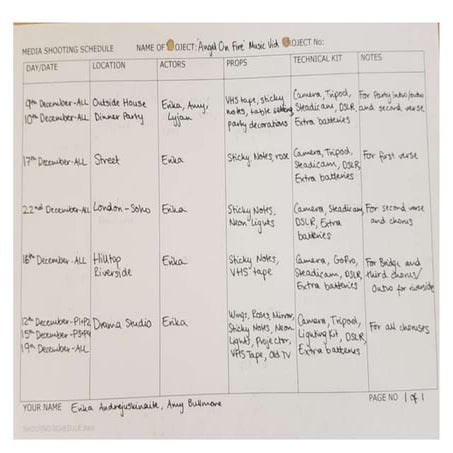 MEDIA SHOOTING SCHEDULE NAME OF PROJECT: 'Angel On Fire' Music Vid PROJECT No:
DAY/DATE LOCATION ACTORS PROPS TECHNICAL KIT NOTES
9th December-ALL
10th December-ALL
Outside House
Dinner Party
Erika, Amy,
Lujan
VHS tape, sticky
notes, table setting
party decorations
Camera, Tripod,
Steadicam, DSLR,
Extra batteries
For Party intro/outro
and second verse
17th December-ALL
Street
Erika
Sticky Notes, rose
Camera, Tripod,
Steadicam, DSLR,
Extra batteries
For first verse
22nd December-ALL
London-Soho
Erika
Sticky Notes,
Neon lights
Camera, Steadicam,
DSLR, Extra
batteries
For second verse
and chorus
16th December-ALL
Hilltop
Riverside
Erika
Sticky Notes,
VHS tape
Camera, GoPro,
Steadicam, DSLR
Extra batteries
For Bridge and
third chorus/
Outro for riverside
12th December-P1+P2
15th December-P3+P4
19th December-ALL
Drama Studio
Erika
Wings, Roses, Mirror,
Sticky Notes, Neon
Lights, Projector,
VHS Tape, Old TV
Camera, Tripod,
Lighting Kit, DSLR,
Extra batteries
For all choruses
YOUR NAME Erika Andrejuskinaite, Amy Bullmore PAGE NO 1 of 1
SHOOTING SCHEDULE